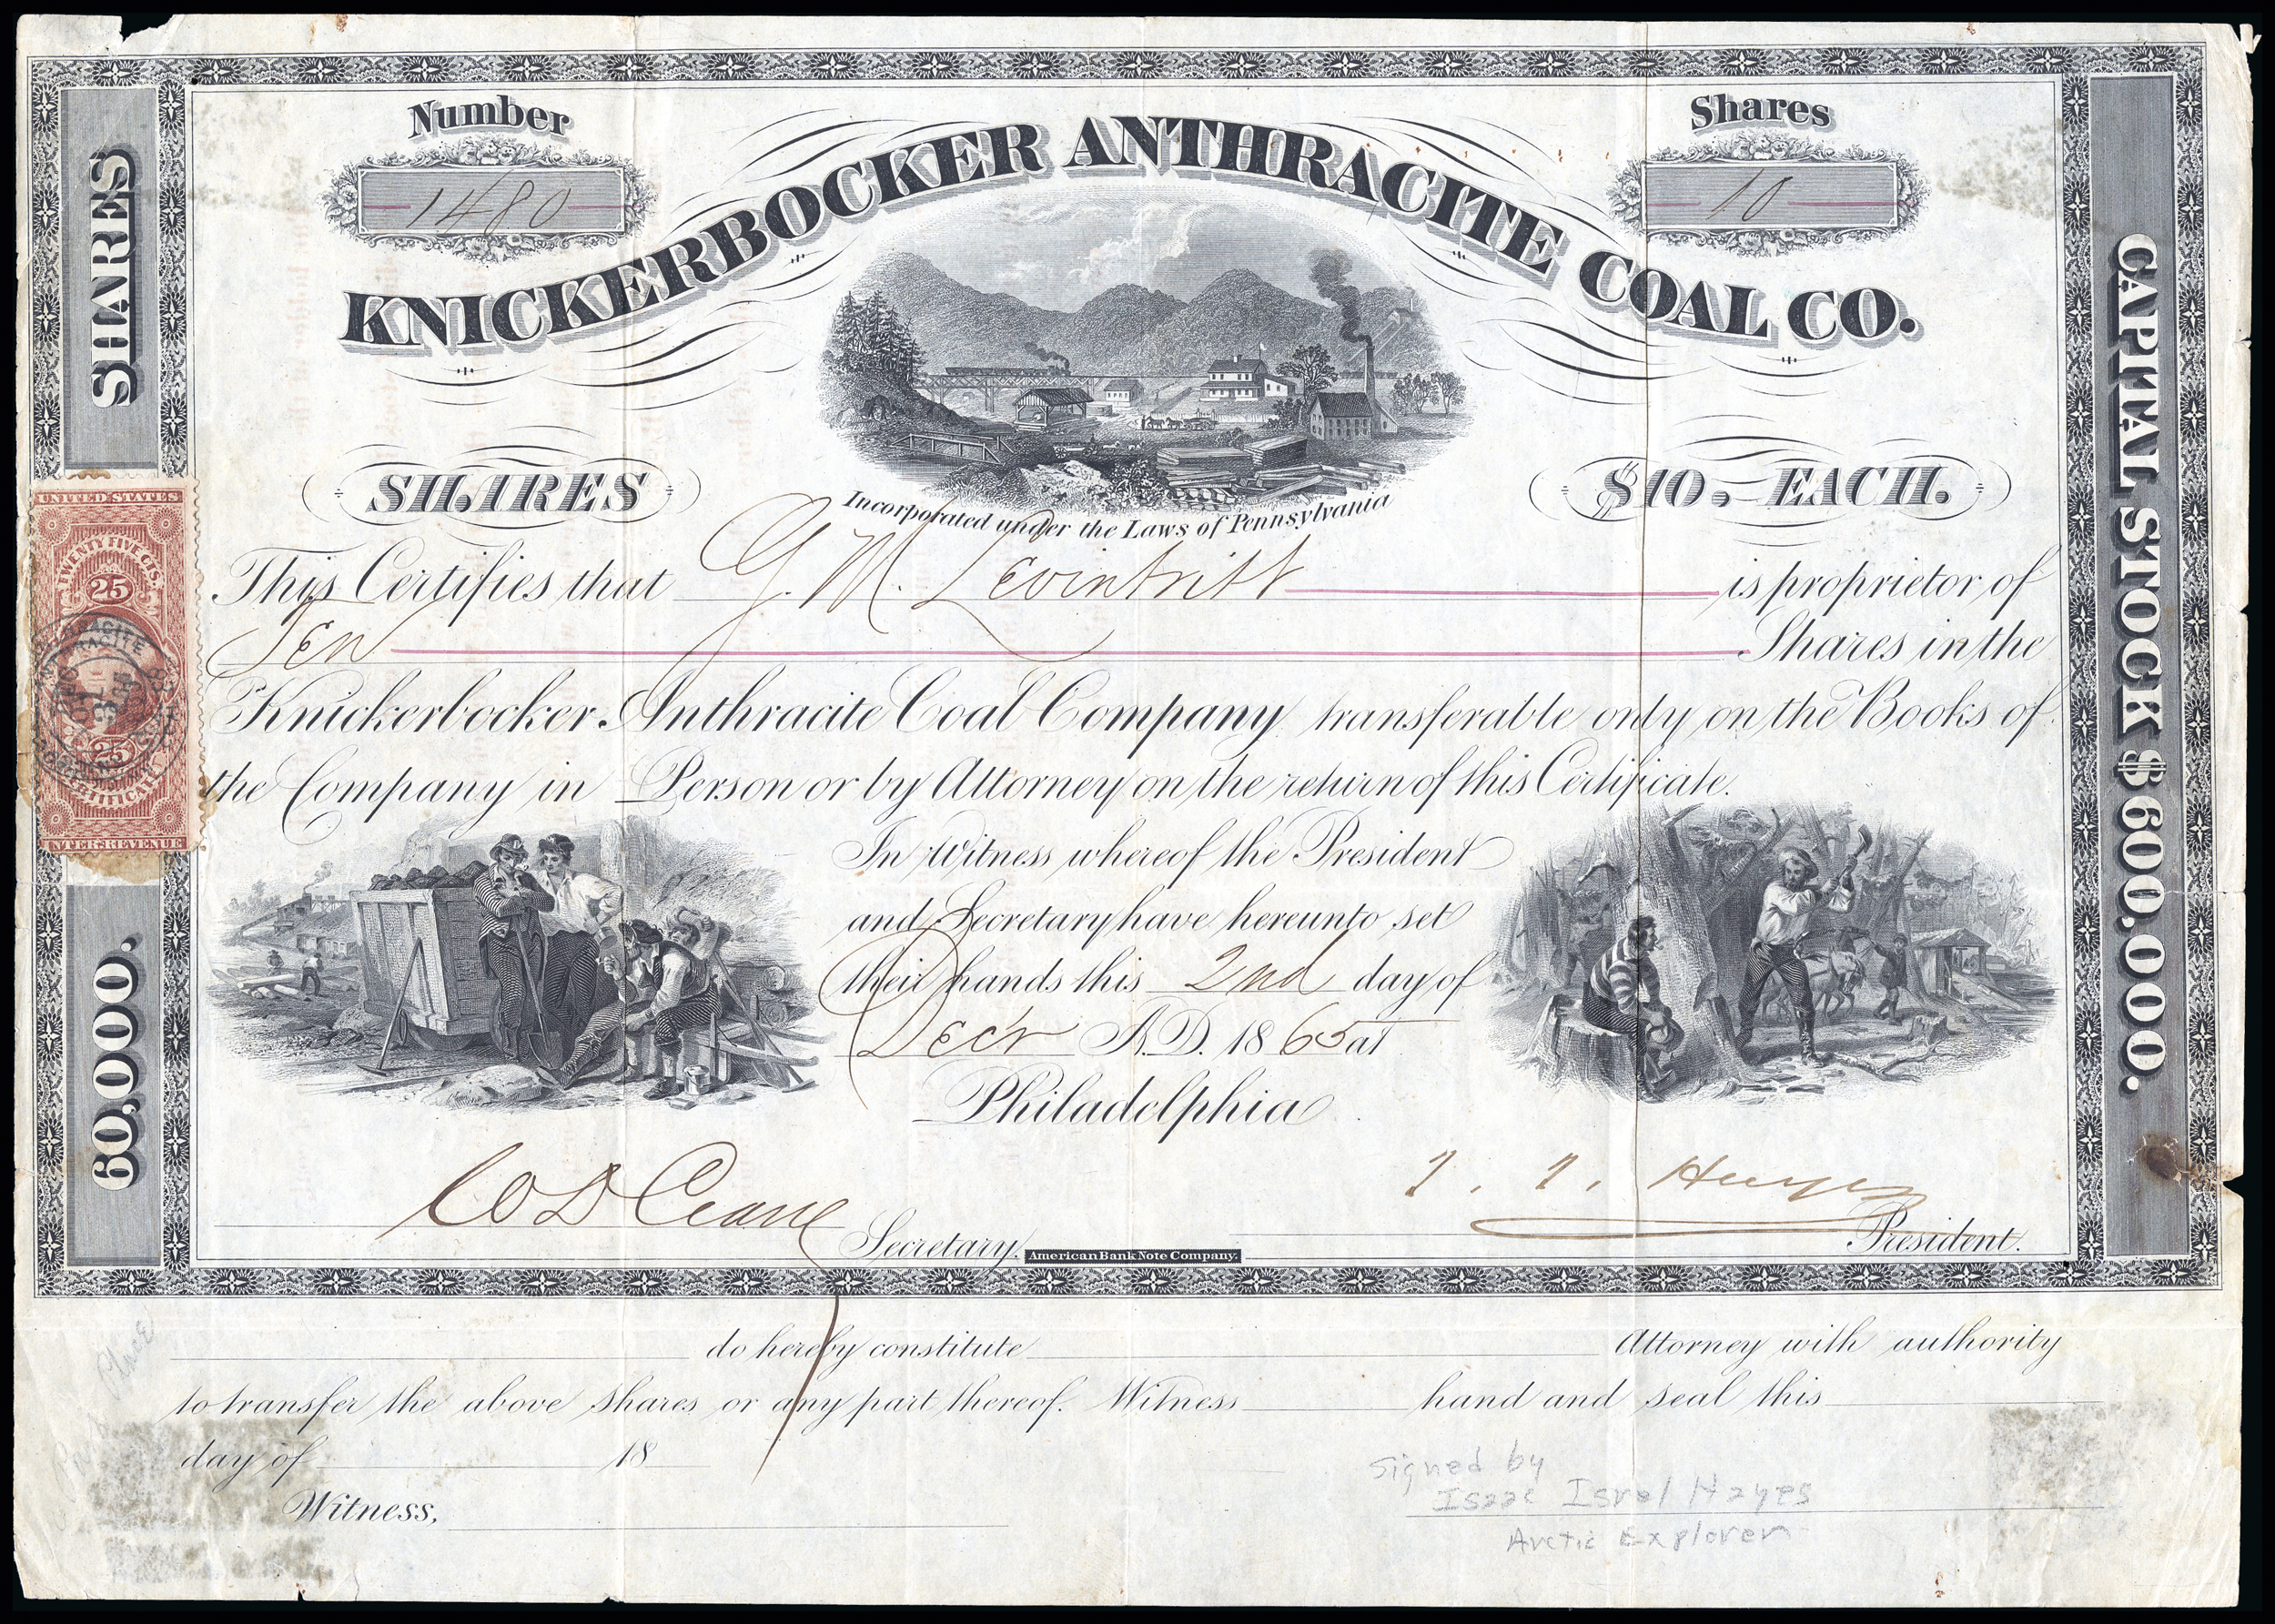 Number
1480
Shares
10
KNICKERBOCKER ANTHRACITE COAL CO.
SHARES
60,000.
CAPITAL STOCK $600,000.
SHARES
$10. EACH.
Incorporated under the Laws of Pennsylvania
UNITED STATES
TWENTY FIVE CTS.
25
25
CERTIFICATE
INTER. REVENUE
This Certifies that G. M. Levintritt is proprietor of
Ten Shares in the
Knickerbocker Anthracite Coal Company transferable only on the Books of
the Company in Person or by Attorney on the return of this Certificate.
In Witness whereof the President
and Secretary have hereunto set
their hands this 2nd day of
Dec'r A.D. 1865 at
Philadelphia
W D Crane Secretary.
American Bank Note Company.
I. I. Hayes President.
do hereby constitute Attorney with authority
to transfer the above shares or any part thereof. Witness hand and seal this
day of 18
Witness,
Signed by
Isaac Isrel Hayes
Arctic Explorer